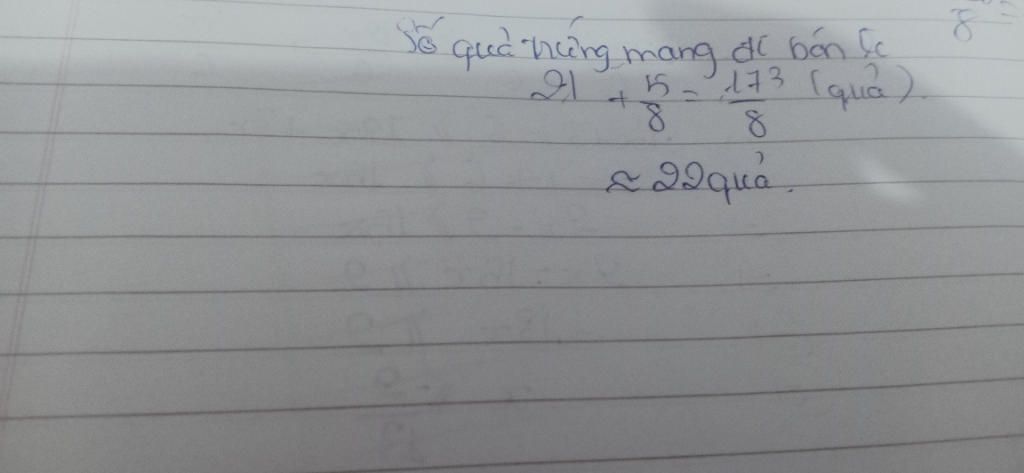 8 =
Số quả trứng mang đi bán là
21 + 5/8 = 173/8 (quả).
≈ 22 quả.